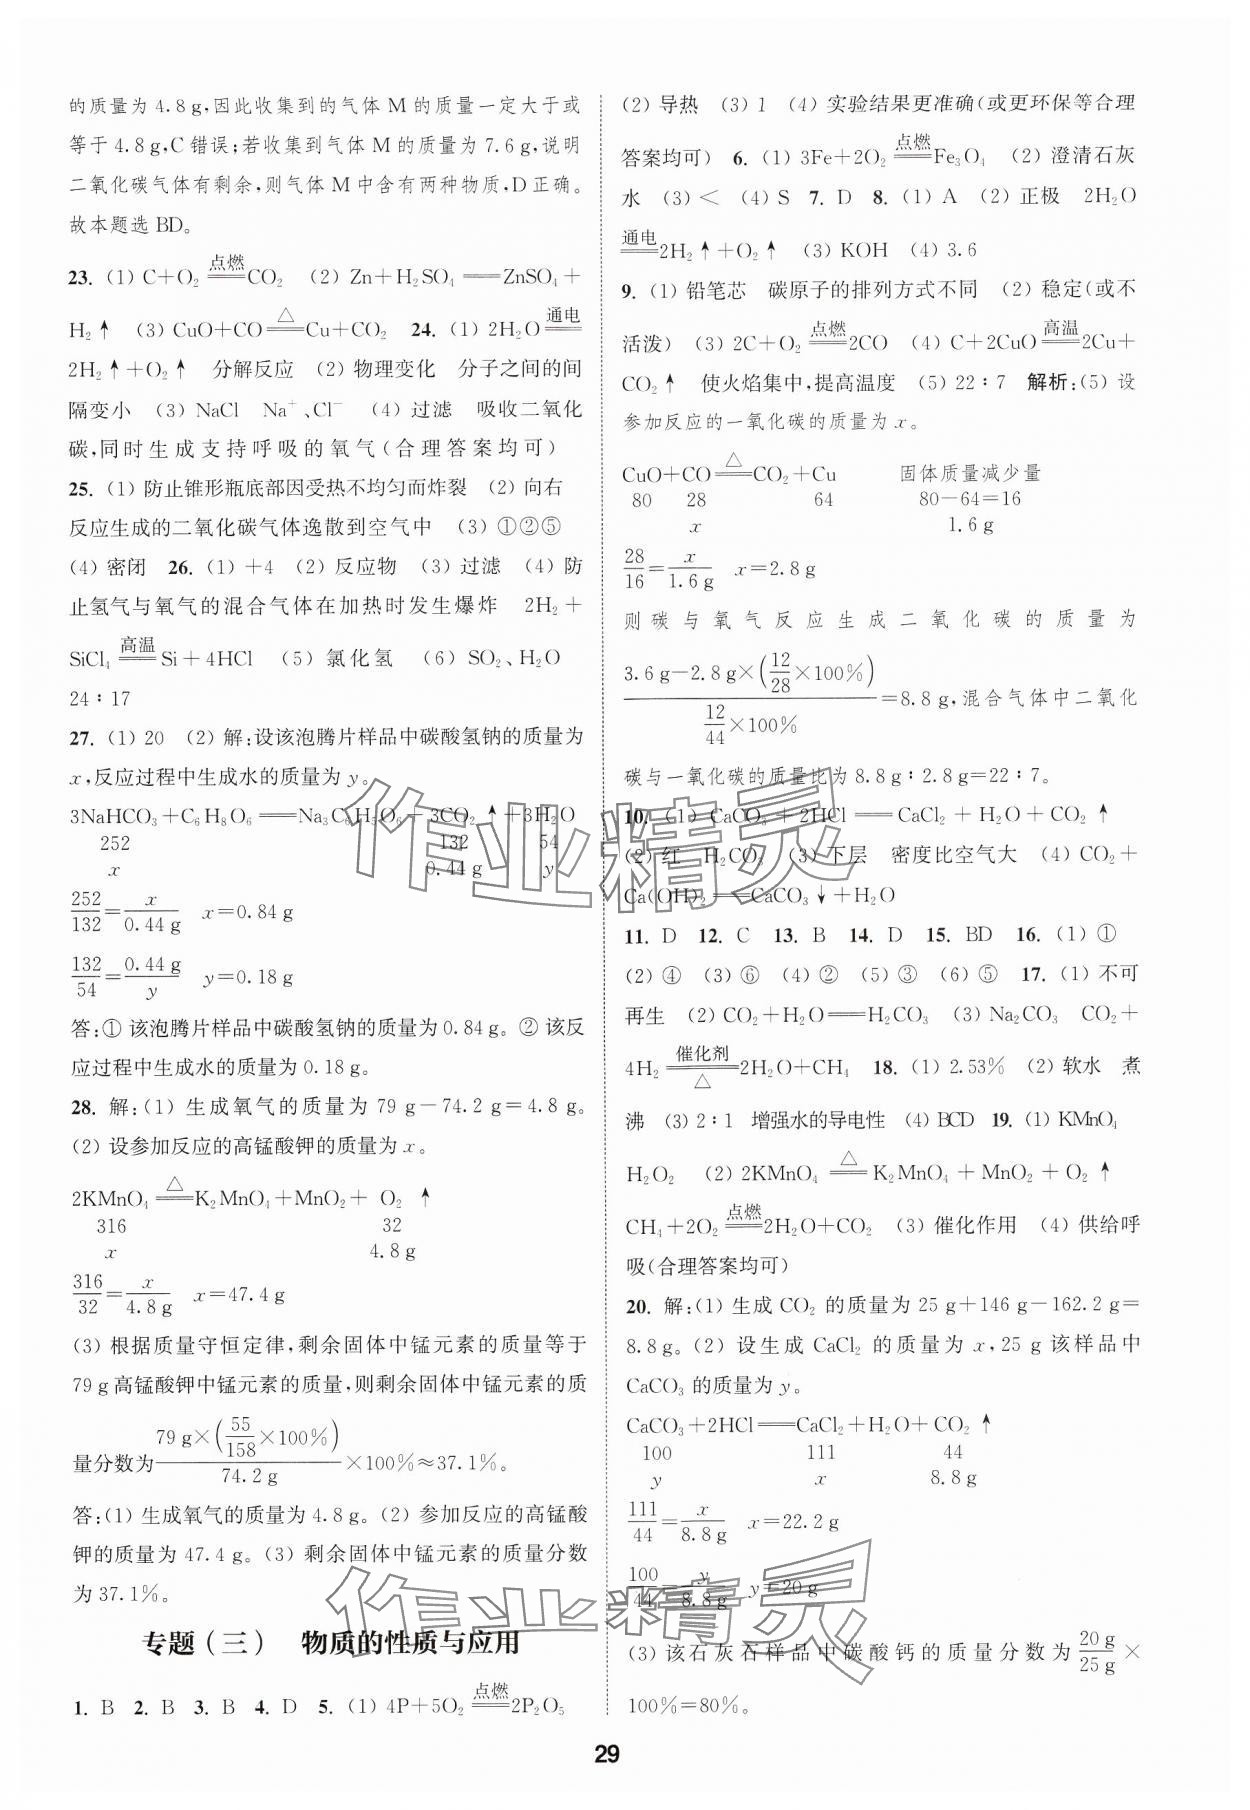 的质量为 4.8 g,因此收集到的气体 M 的质量一定大于或
等于 4.8 g,C 错误;若收集到气体 M 的质量为 7.6 g,说明
二氧化碳气体有剩余,则气体 M 中含有两种物质,D 正确。
故本题选 BD。
23. (1) C+O₂ 点燃═ CO₂ (2) Zn+H₂SO₄═ZnSO₄+
H₂↑ (3) CuO+CO △═ Cu+CO₂ 24. (1) 2H₂O 通电═
2H₂↑+O₂↑ 分解反应 (2) 物理变化 分子之间的间
隔变小 (3) NaCl Na⁺、Cl⁻ (4) 过滤 吸收二氧化
碳,同时生成支持呼吸的氧气(合理答案均可)
25. (1) 防止锥形瓶底部因受热不均匀而炸裂 (2) 向右
反应生成的二氧化碳气体逸散到空气中 (3) ①②⑤
(4) 密闭 26. (1) +4 (2) 反应物 (3) 过滤 (4) 防
止氢气与氧气的混合气体在加热时发生爆炸 2H₂+
SiCl₄ 高温═ Si+4HCl (5) 氯化氢 (6) SO₂、H₂O
24∶17
27. (1) 20 (2) 解:设该泡腾片样品中碳酸氢钠的质量为
x,反应过程中生成水的质量为 y。
3NaHCO₃+C₆H₈O₆═Na₃C₆H₅O₆+3CO₂↑+3H₂O
252 132 54
x 0.44 g y
252/132=x/0.44 g x=0.84 g
132/54=0.44 g/y y=0.18 g
答:① 该泡腾片样品中碳酸氢钠的质量为 0.84 g。② 该反
应过程中生成水的质量为 0.18 g。
28. 解:(1) 生成氧气的质量为 79 g-74.2 g=4.8 g。
(2) 设参加反应的高锰酸钾的质量为 x。
2KMnO₄ △═ K₂MnO₄+MnO₂+O₂↑
316 32
x 4.8 g
316/32=x/4.8 g x=47.4 g
(3) 根据质量守恒定律,剩余固体中锰元素的质量等于
79 g 高锰酸钾中锰元素的质量,则剩余固体中锰元素的质
量分数为 79 g×(55/158×100%)/74.2 g×100%≈37.1%。
答:(1) 生成氧气的质量为 4.8 g。(2) 参加反应的高锰酸
钾的质量为 47.4 g。(3) 剩余固体中锰元素的质量分数
为 37.1%。
专题(三) 物质的性质与应用
1. B 2. B 3. B 4. D 5. (1) 4P+5O₂ 点燃═ 2P₂O₅
(2) 导热 (3) 1 (4) 实验结果更准确(或更环保等合理
答案均可) 6. (1) 3Fe+2O₂ 点燃═ Fe₃O₄ (2) 澄清石灰
水 (3) < (4) S 7. D 8. (1) A (2) 正极 2H₂O
通电═ 2H₂↑+O₂↑ (3) KOH (4) 3.6
9. (1) 铅笔芯 碳原子的排列方式不同 (2) 稳定(或不
活泼) (3) 2C+O₂ 点燃═ 2CO (4) C+2CuO 高温═ 2Cu+
CO₂↑ 使火焰集中,提高温度 (5) 22∶7 解析:(5) 设
参加反应的一氧化碳的质量为 x。
CuO+CO △═ CO₂+Cu 固体质量减少量
80 28 64 80-64=16
x 1.6 g
28/16=x/1.6 g x=2.8 g
则碳与氧气反应生成二氧化碳的质量为
3.6 g-2.8 g×(12/28×100%)/(12/44×100%)=8.8 g,混合气体中二氧化
碳与一氧化碳的质量比为 8.8 g∶2.8 g=22∶7。
10. (1) CaCO₃+2HCl═CaCl₂+H₂O+CO₂↑
(2) 红 H₂CO₃ (3) 下层 密度比空气大 (4) CO₂+
Ca(OH)₂═CaCO₃↓+H₂O
11. D 12. C 13. B 14. D 15. BD 16. (1) ①
(2) ④ (3) ⑥ (4) ② (5) ③ (6) ⑤ 17. (1) 不可
再生 (2) CO₂+H₂O═H₂CO₃ (3) Na₂CO₃ CO₂+
4H₂ 催化剂/△═ 2H₂O+CH₄ 18. (1) 2.53% (2) 软水 煮
沸 (3) 2∶1 增强水的导电性 (4) BCD 19. (1) KMnO₄
H₂O₂ (2) 2KMnO₄ △═ K₂MnO₄+MnO₂+O₂↑
CH₄+2O₂ 点燃═ 2H₂O+CO₂ (3) 催化作用 (4) 供给呼
吸(合理答案均可)
20. 解:(1) 生成 CO₂ 的质量为 25 g+146 g-162.2 g=
8.8 g。(2) 设生成 CaCl₂ 的质量为 x,25 g 该样品中
CaCO₃ 的质量为 y。
CaCO₃+2HCl═CaCl₂+H₂O+CO₂↑
100 111 44
y x 8.8 g
111/44=x/8.8 g x=22.2 g
100/44=y/8.8 g y=20 g
(3) 该石灰石样品中碳酸钙的质量分数为 20 g/25 g×
100%=80%。
29
作业精灵
作业精灵